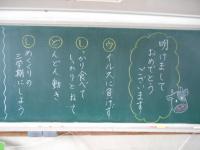 明けまして
おめでとう
ございます
ウイルスに負けず
しっかり食べて
しっかりとねて
どんどん動き
しめくくりの
三学期にしよう